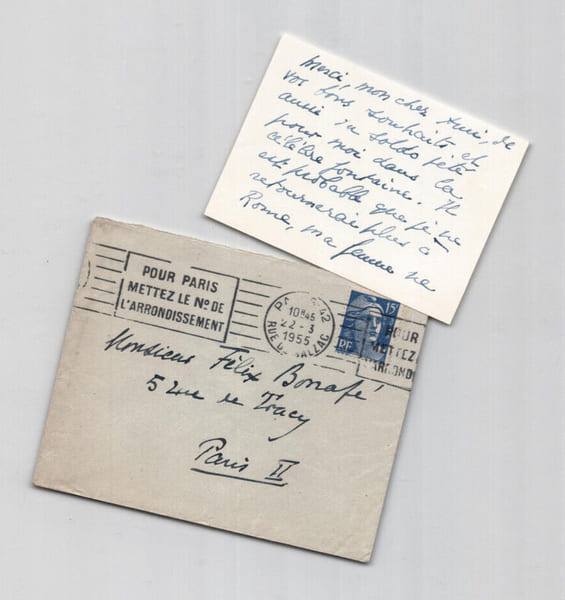 Merci, mon cher Ami, de
vos bons souhaits et
aussi du soldo jeté
pour moi dans la
célèbre fontaine. Il
est probable que je ne
retournerai plus à
Rome, ma femme ne
POUR PARIS
METTEZ LE No DE
L'ARRONDISSEMENT
10H45
22-3
1955
RUE BALZAC
15F
RF
POUR
METTEZ
L'ARROND
Monsieur Félix Bonafé
5 rue de Tracy
Paris II